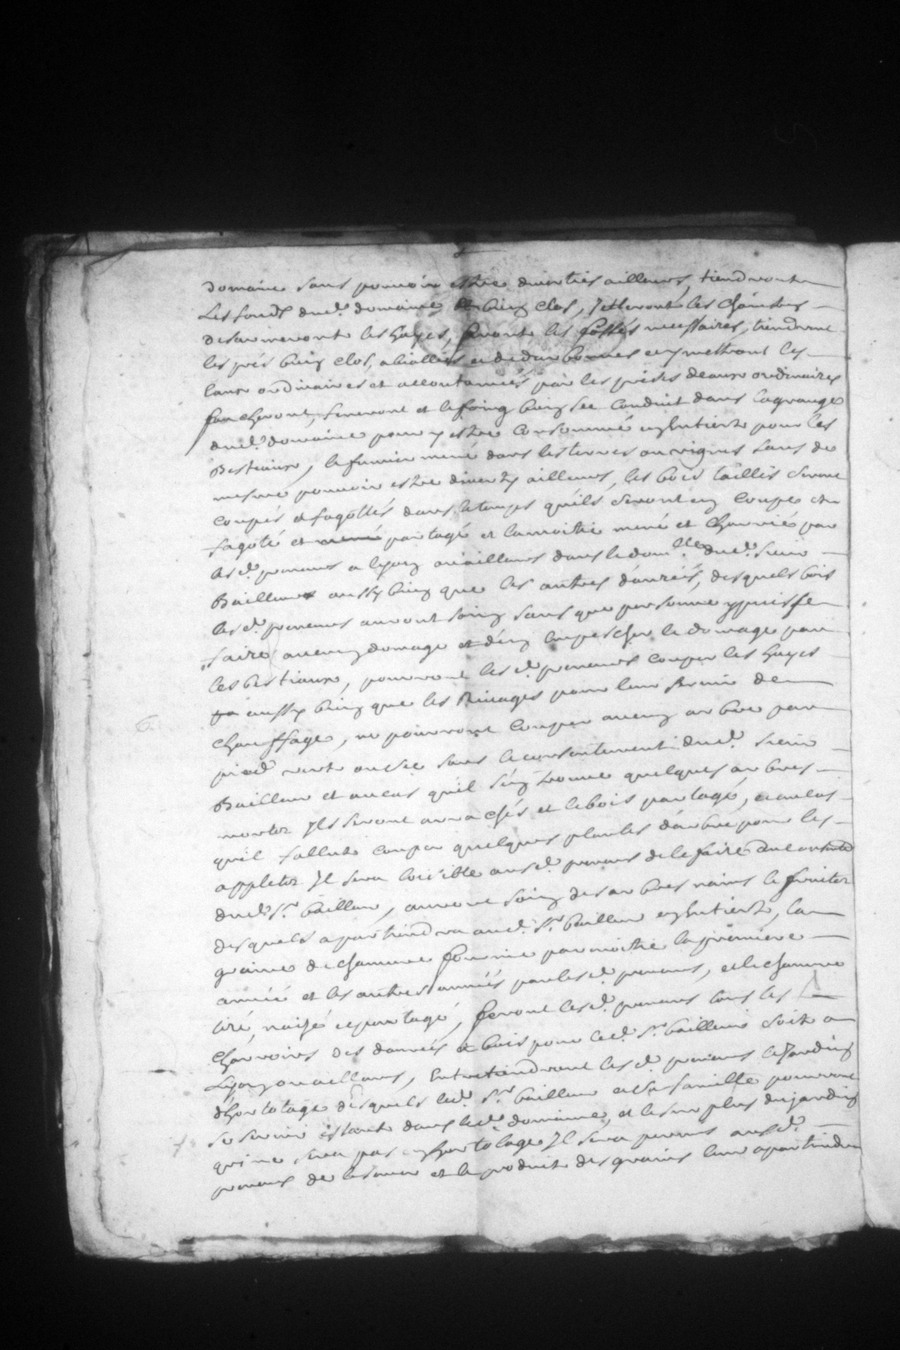 domaine sans pouvoir estre diverties ailleurs, tiendront
les fonds dud. domaine bien clos, les
les hayes, feront les fossés necessaires, tiendront
les prés bien clos, et de bonnes et y mettront les
eaux ordinaires et accoutumées par les prises deaux ordinaires
faucheront, feneront et le foing bien sec conduit dans la grange
dud. domaine pour y estre consommé en entier pour les
Bestiaux, le fumier mené dans les terres ou vignes sans de
mesme pouvoir estre diverty ailleurs, les bois taillis seront
coupés et fagottés dans le temps quils seront en coupe
fagoté et partagé et la moitié mené et charroié par
les d. preneurs a Lyon ou ailleurs dans le dom.lle dud. sieur
Baillieu aussy bien que les autres danrées, desquels bois
les d. preneurs auront soing sans que personne y puisse
faire aucun domage et den empescher le domage par
les bestiaux, pourront les d. preneurs couper les hayes
aussy bien que les Rivages pour leur de
chauffage, ne pourront couper aucun arbre par
pied verts ou sec sans le consentement dud. sieur
Baillieu et au cas quil sen trouve quelques arbres
morts Ils seront arrachés et le bois partagé, et au cas
quil fallut couper quelques plantes darbre pour les
Il sera loisible aux d. preneurs de le faire du consente
dud. Sr. baillieu, auront soing des arbres nains le fruiter
desquels apartiendra aud. Sr. baillieu en entier, la
graine de chanvre fournie par moitié la premiere
année et les autres années par les d. preneurs, et le chanvre
tiré, naizé et partagé, feront les d. preneurs tous les
charrois des danrées et bois pour led. Sr. baillieu soit a
Lyon ou ailleurs, Entretiendront les d. preneurs le Jardin
dhortolage desquels led. Sr. baillieu et sa famille pourront
se servir estant dans led. domaine, et le surplus du jardin
qui ne sera pas en hortolage Il sera permis aux d.
preneurs de le semer et le produit des grains leur apartiendra